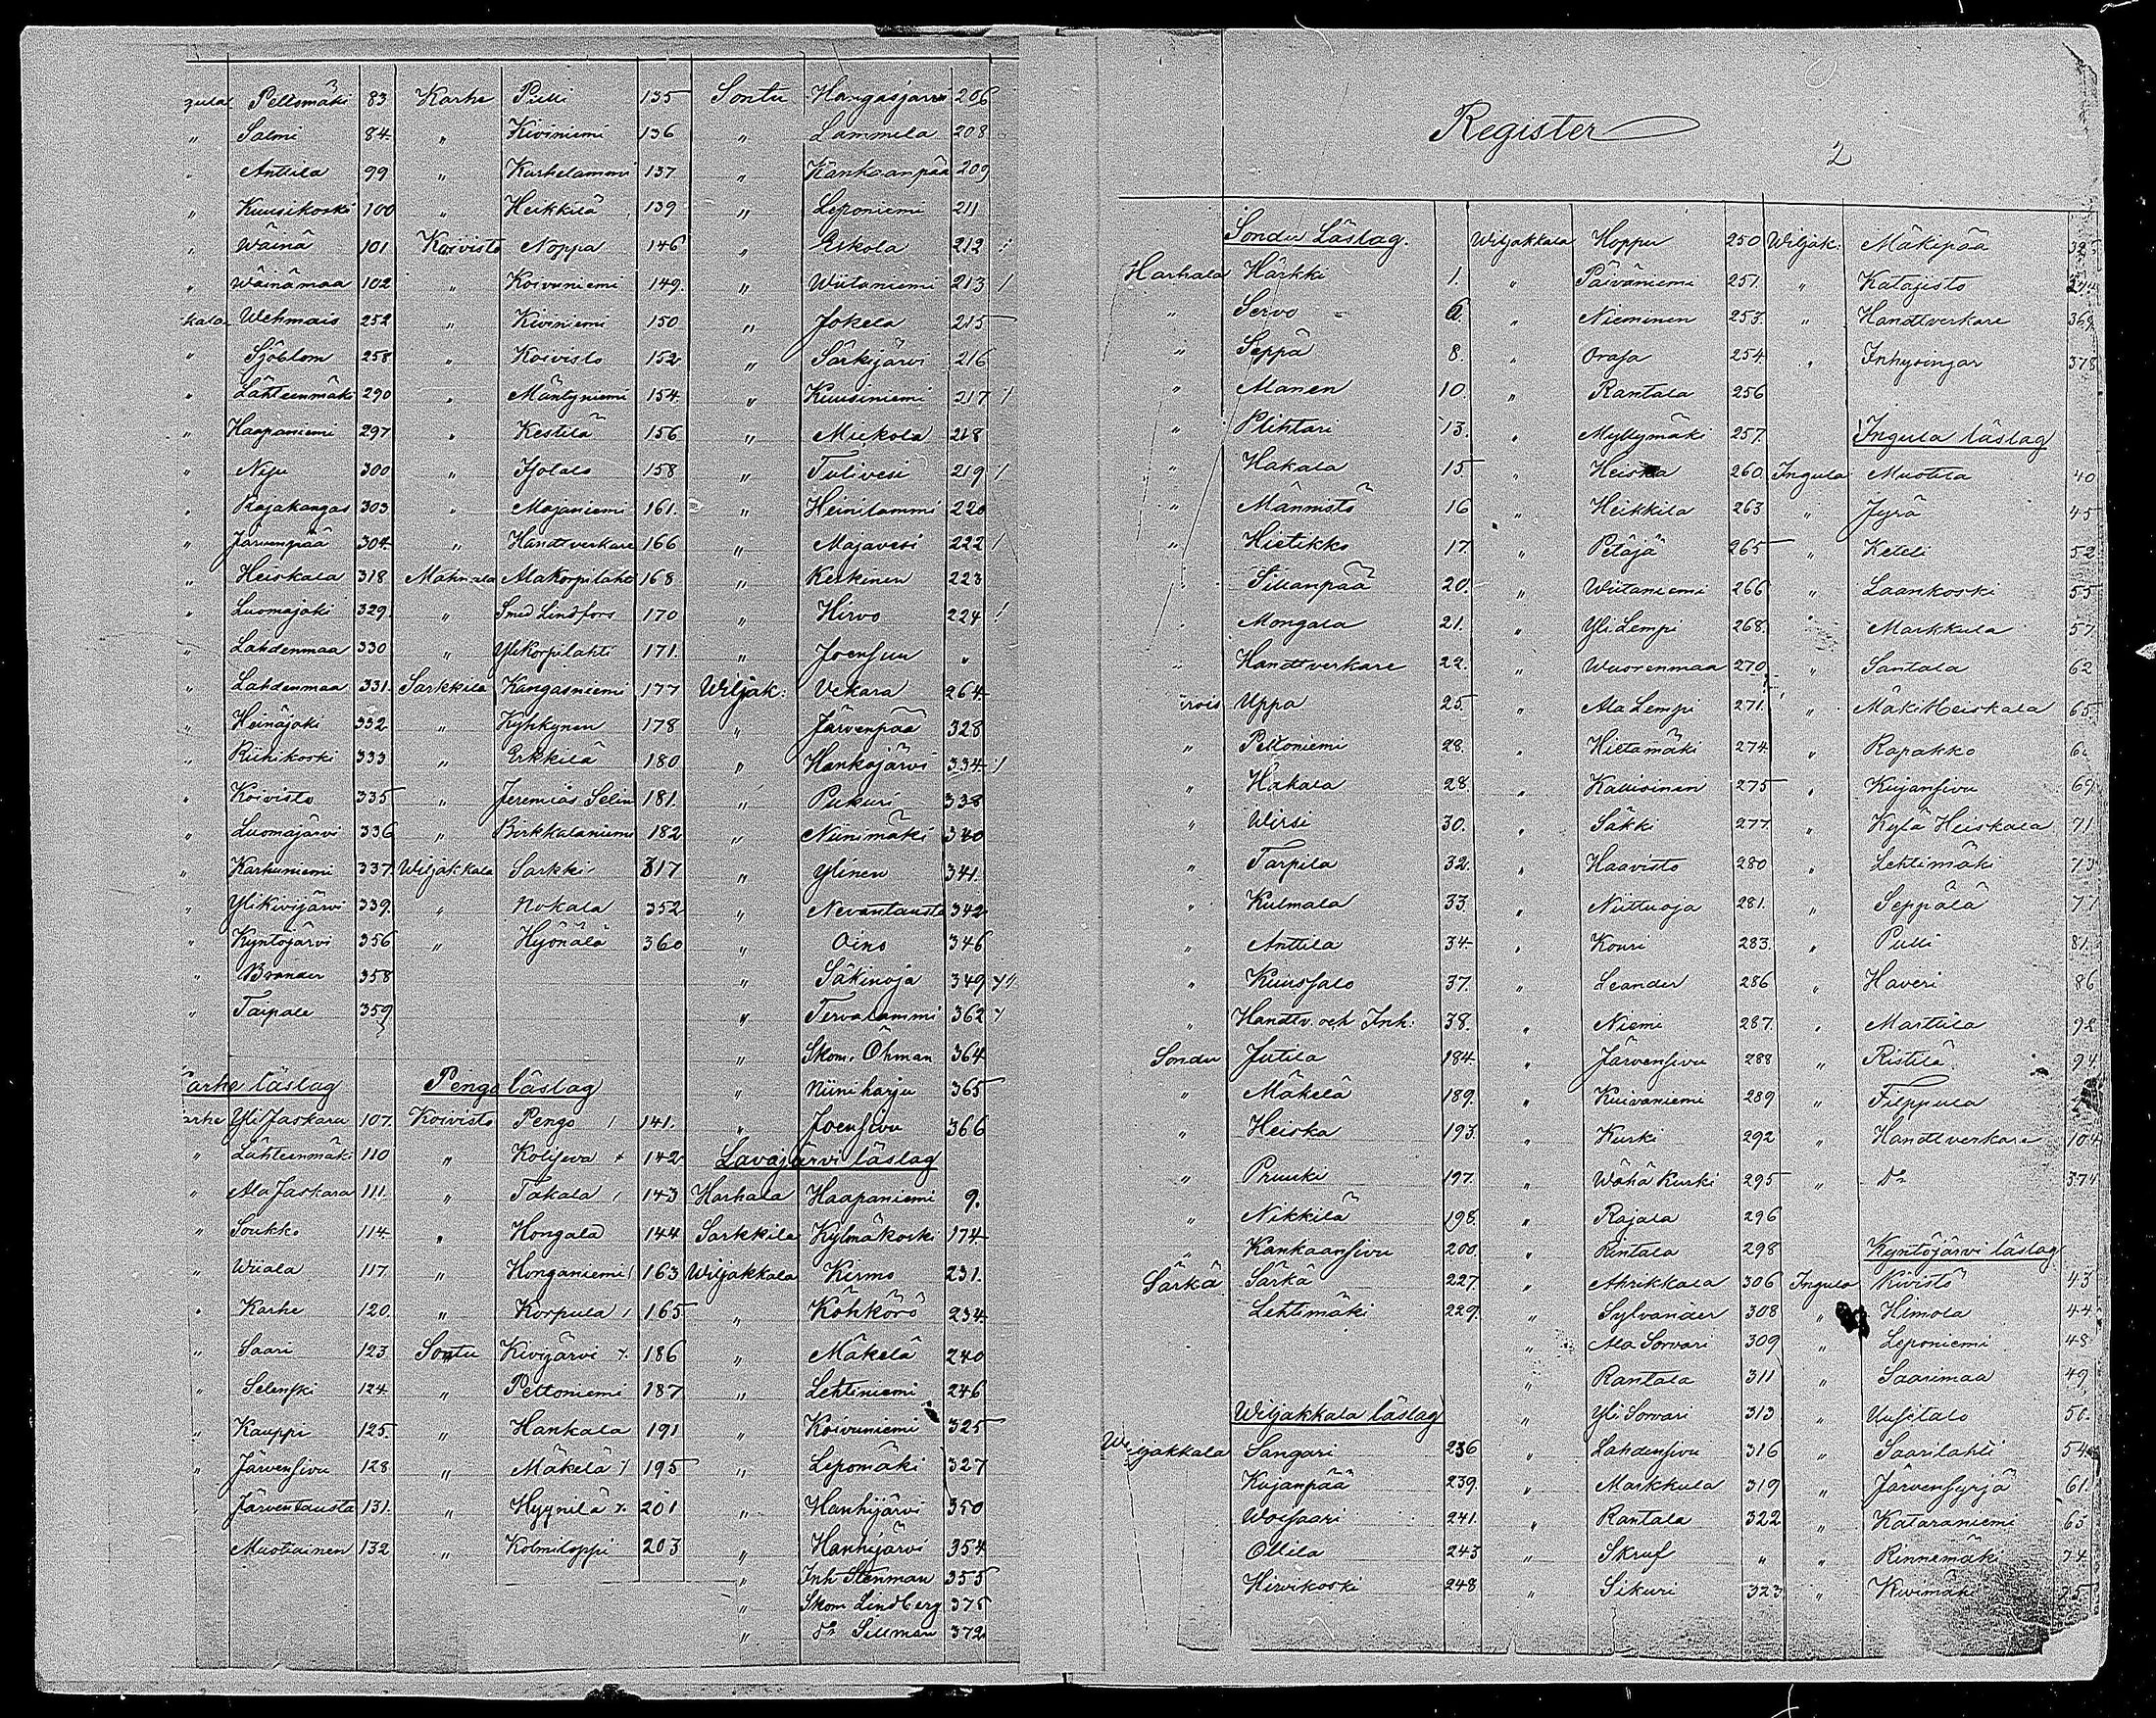 Peltomäki 83
" Salmi 84
Anttila 99
" Kuusikoski 100
" Wäinä 101
" Wäinämaa 102
Wehmais 252
" Sjöblom 258
" Lähteenmäki 290
" Haapaniemi 297
" Niju 300
" Rajakangas 303
" Järvenpää 304
" Heiskala 318
" Luomajoki 329
" Lahdenmaa 330
" Lahdenmaa 331
" Heinäjoki 332
Riihikoski 333
" Koivisto 335
" Luomajärvi 336
" Karhuniemi 337
" Ylikivijärvi 339
" Kyntöjärvi 356
" Brander 358
" Taipale 359
Karhe läslag
Yli Jaskara 107
" Lähteenmäki 110
" Ala Jaskara 111
" Soukko 114
" Wiiala 117
" Karhe 120
" Saari 123
" Selenski 124
" Kauppi 125
" Järvensivu 128
" Järventausta 131
Muotiainen 132
Karhe Pulli 135
" Kiviniemi 136
" Karhelammi 137
" Heikkilä 139
Koivisto Noppa 146
" Koivuniemi 149
" Kiviniemi 150
" Koivisto 152
" Mäntyniemi 154
" Kestilä 156
" Isotalo 158
" Majaniemi 161
" Handtverkare 166
Mahnala Ala Korpilahti 168
" Smed Lindfors 170
" Yli Korpilahti 171
Sarkkila Kangasniemi 177
" Kyhkynen 178
" Erkkilä 180
" Jeremias Selin 181
" Birkkalaniemi 182
Wiljakkala Sarkki 317
" Nokala 352
" Hyönälä 360
Pengo läslag
Koivisto Pengo 141
" Kolijeva 142
" Takala 143
" Hongala 144
" Honganiemi 163
" Korpula 165
Sontu Kivijärvi 186
" Peltoniemi 187
" Hankala 191
" Mäkelä 195
" Hyynilä 201
" Kolmiloppi 203
Sontu Hangasjärvi 206
" Lammila 208
" Kankaanpää 209
" Leponiemi 211
" Eskola 212
" Wiitaniemi 213
" Jokela 215
" Särkijärvi 216
" Kuusiniemi 217
" Miekola 218
" Tulivesi 219
" Heinilammi 220
" Majavesi 222
" Keskinen 223
" Hirvo 224
" Joensuu "
Wiljak: Vekara 264
" Järvenpää 328
" Hankajärvi 334
" Pukuri 338
" Niinimäki 340
" Ylinen 341
" Nevantausta 342
" Oino 346
" Säkinoja 349
" Tervalammi 362
" Skom. Öhman 364
" Niiniharju 365
" Joensivu 366
Lavajärvi läslag
Harhala Haapaniemi 9
Sarkkila Kylmäkoski 174
Wiljakkala Kirmo 231
" Köhkörö 234
" Mäkelä 240
" Lehtiniemi 246
" Koivuniemi 325
" Lepomäki 327
" Hanhijärvi 350
" Hanhijärvi 354
" Inh Stenman 355
" Skom Lindberg 375
" Do Sillman 372
Register
2
Sondu Läslag.
Harhala Härkki 1.
" Servo 6.
" Seppä 8.
" Manen 10.
" Plihtari 13.
" Hakala 15
" Männistö 16
" Hietikko 17
" Sillanpää 20.
" Mongala 21.
" Handtverkare 22.
Uppa 25
" Peltoniemi 28.
" Hakala 28.
" Wirsi 30.
" Tarpila 32.
" Kulmala 33.
" Anttila 34
" Kuussalo 37.
" Handtv. och Inh: 38.
Sondu Jutila 184.
" Mäkelä 189.
" Heiska 193.
" Pruuki 197.
" Nikkilä 198.
" Kankaansivu 200.
Särkä Särkä 227.
Lehtimäki 229.
Wiljakkala läslag
Wiljakkala Sangari 236
Kujanpää 239.
Woisaari 241.
Ollila 243
Hirvikoski 248
Wiljakkala Hoppu 250
" Päiväniemi 251.
" Nieminen 253.
" Oraja 254
" Rantala 256
" Myllymäki 257.
" Heiska 260.
" Heikkilä 263
" Petäjä 265
" Wiitaniemi 266
" Yli Lempi 268.
" Wuorenmaa 270
" Ala Lempi 271.
" Hietamäki 274
" Kallioinen 275
" Säkki 277.
" Haavisto 280
" Niittuoja 281.
" Kouri 283
" Leander 286
" Niemi 287.
" Järvensivu 288
" Kuivaniemi 289
" Kurki 292
" Wähä Kurki 295
" Rajala 296
" Rintala 298
" Ahrikkala 306
" Sylvander 308
" Ala Sorvari 309
" Rantala 311
" Yli Sorvari 313
" Lahdensivu 316
" Markkula 319
" Rantala 322
" Skruf "
" Sikuri 323
Wiljak: Mäkipää
" Katajisto
" Handtverkare 369
" Inhysingar 378
Ingula läslag
Ingula Muotila 40
" Jyrä 45
" Keteli 52
" Laankoski 55
" Markkula 57
" Santala 62
" Mäki Heiskala 65
" Rapakko
" Kujansivu 69
" Kylä Heiskala 71
" Lehtimäki 73
" Seppälä
" Pulli 81
" Haveri 86
" Marttila 92
" Ristilä 94
" Filppula
" Handtverkare 104
" Do 374
Kyntöjärvi läslag
Ingula Kivistö 43
" Himola 44
" Leponiemi 48
" Saarimaa 49
" Uusitalo 50
" Saarilahti 54
" Järvensyrjä 61.
" Kataraniemi 63
" Rinnemäki 74
" Kivimäki